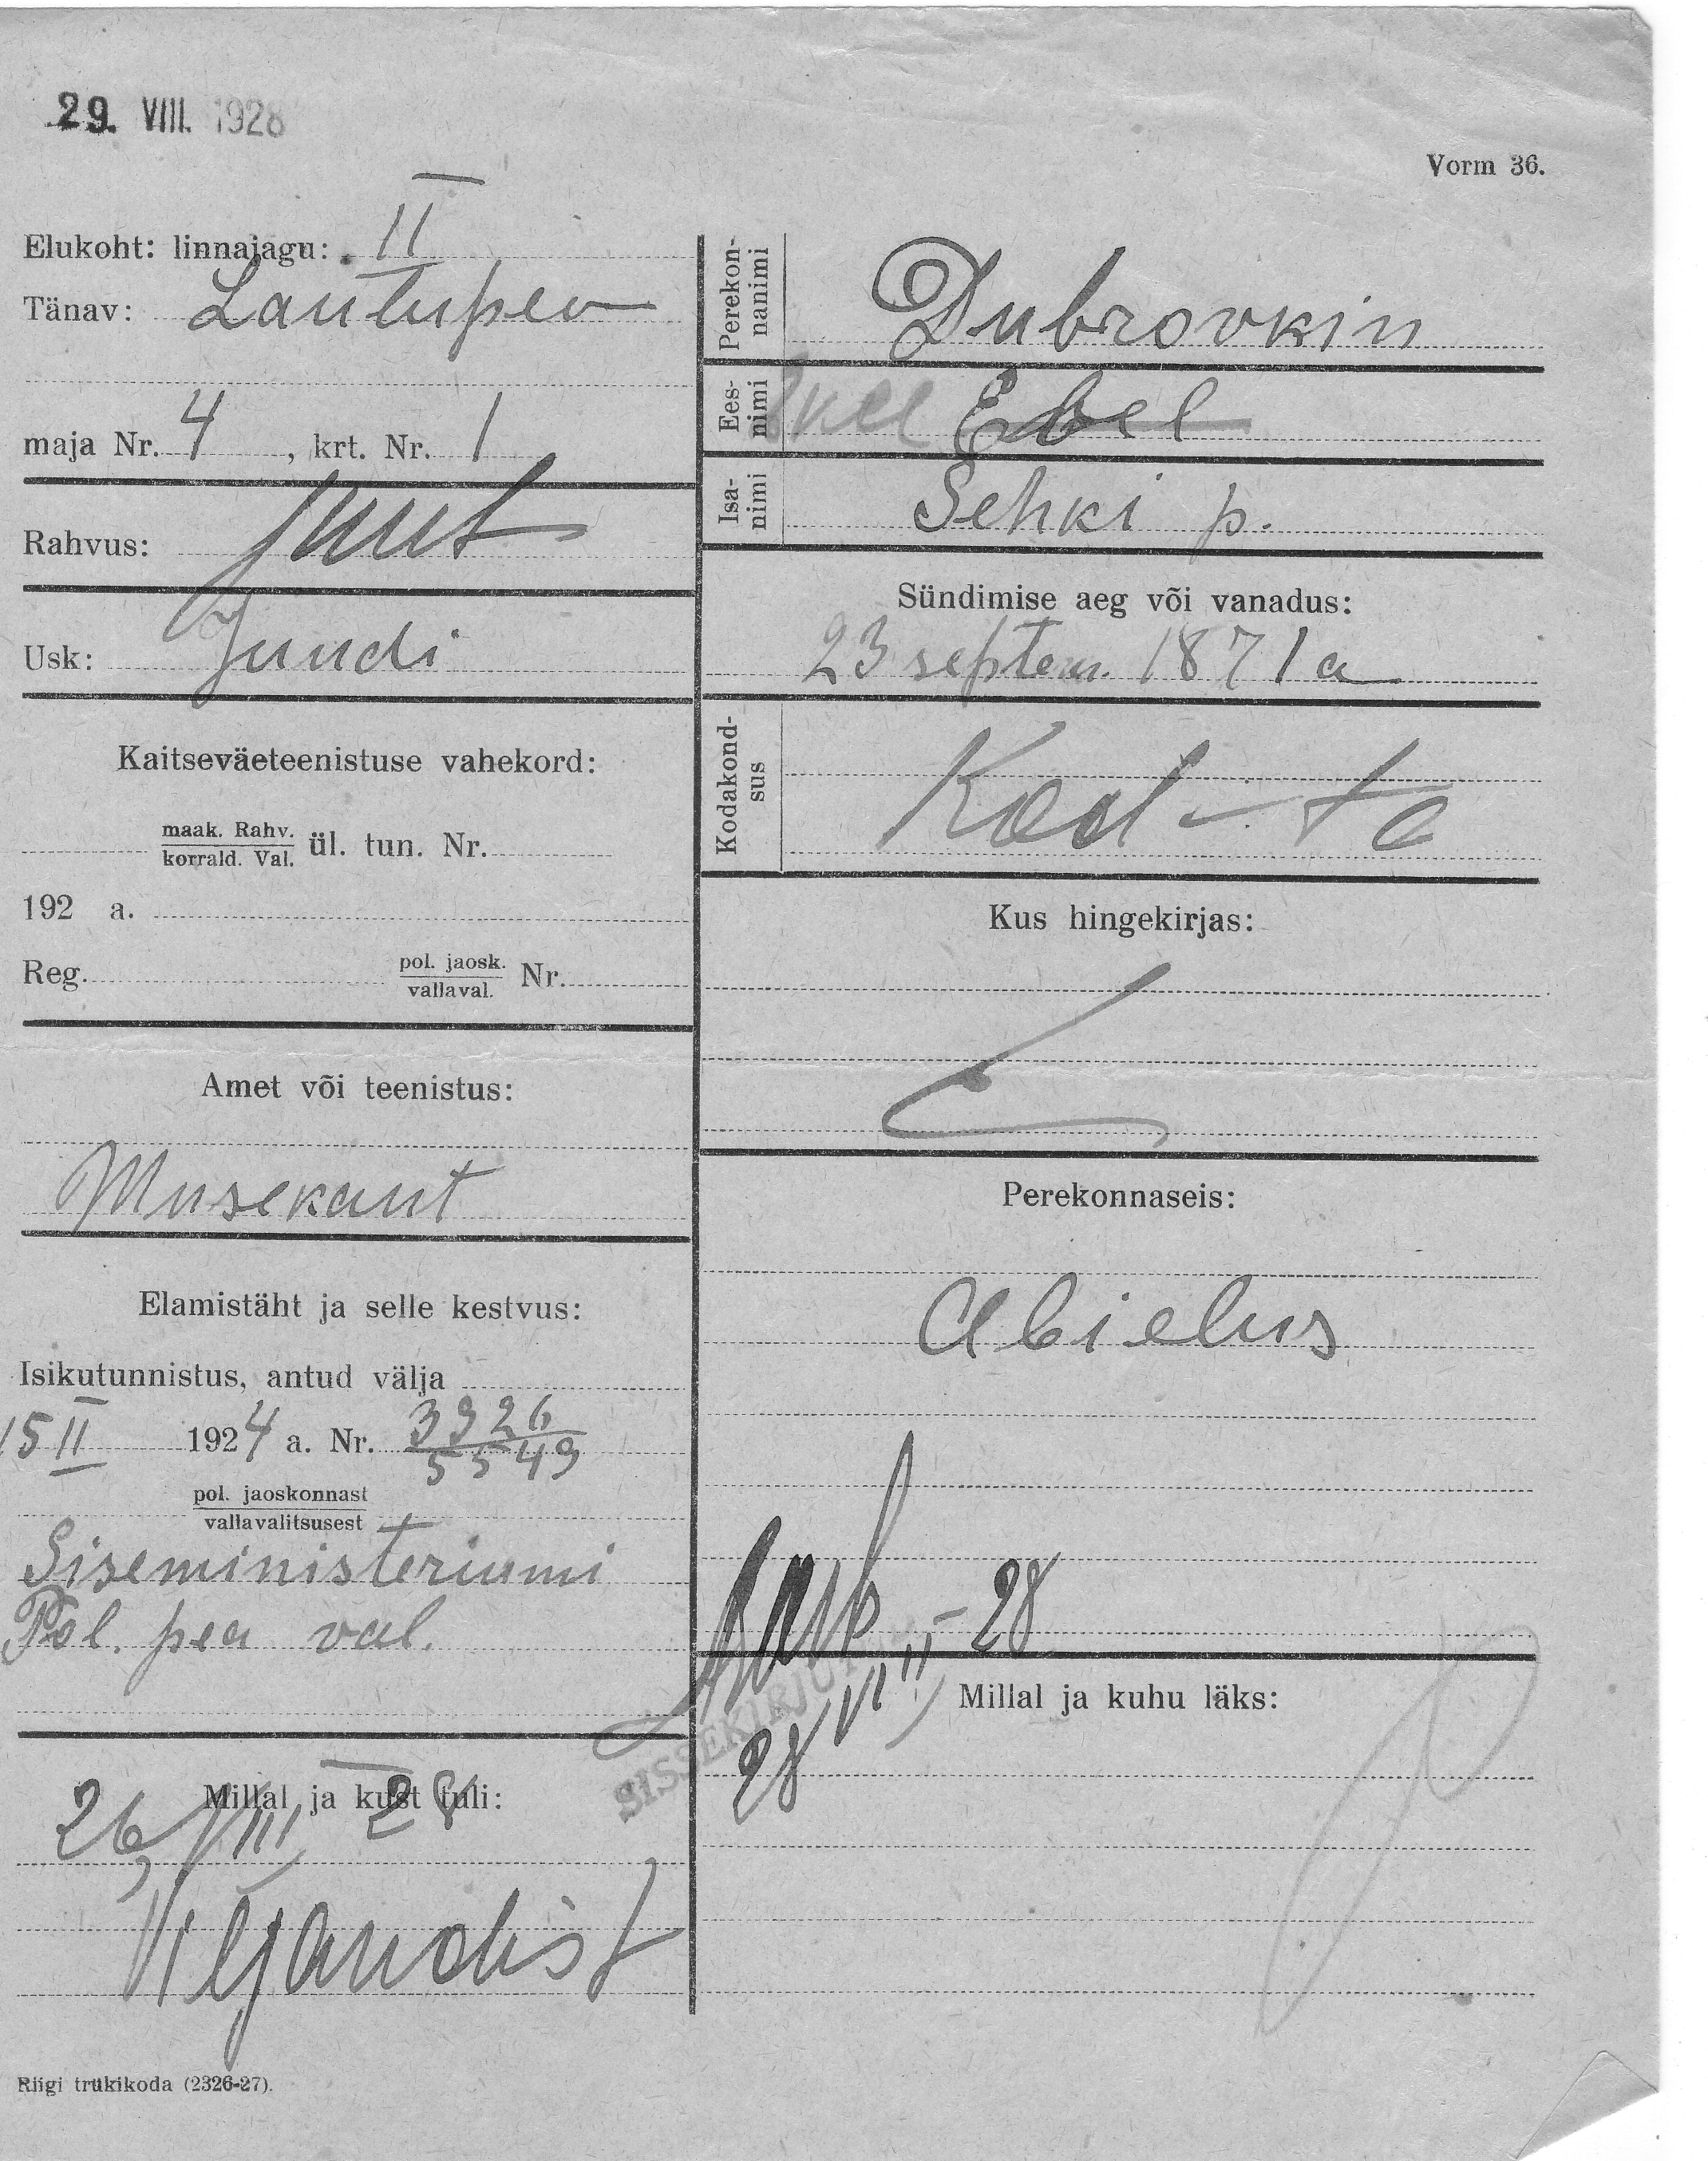 29. VIII. 1928
Vorm 36.
Elukoht: linnajagu: II
Tänav: Lautupea
maja Nr. 4, krt. Nr. 1
Rahvus: Juut
Usk: Juudi
Kaitseväeteenistuse vahekord:
maak. Rahv.
korrald. Val. ül. tun. Nr.
192 a.
Reg. pol. jaosk.
vallaval. Nr.
Amet või teenistus:
Musekant
Elamistäht ja selle kestvus:
Isikutunnistus, antud välja
15 II 1924 a. Nr. 3926
5549
pol. jaoskonnast
vallavalitsusest
Siseministeriumi
Pol. pea val.
Millal ja kust tuli:
26, VIII 28
Viljandist
Riigi trükikoda (2326-27).
Perekonnanimi
Dubrovkin
Eesnimi
Ebel
Isanimi
Sehki p.
Sündimise aeg või vanadus:
23 septem. 1871 a
Kodakondsus
Kod-ta
Kus hingekirjas:
Perekonnaseis:
Abielus
28
SISSEKIRJUT
28 VIII
Millal ja kuhu läks: